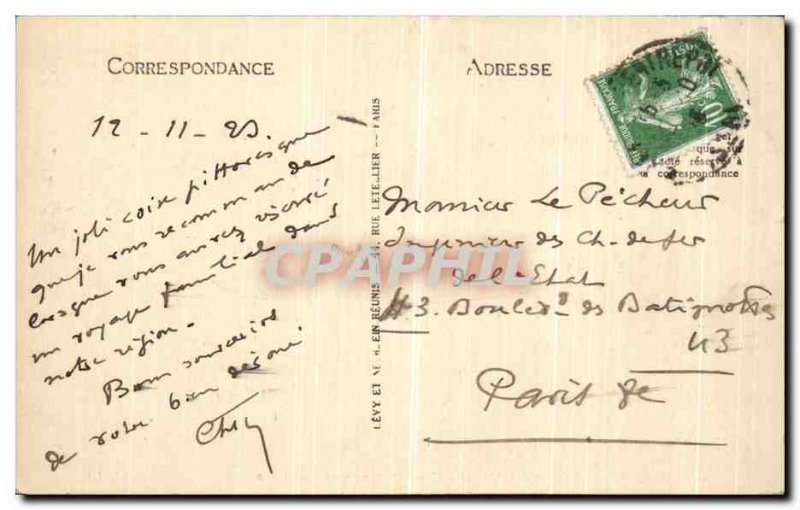 CORRESPONDANCE
ADRESSE
12 - 11 - 23.
Un joli coin pittoresque
que je vous recommande
lorsque vous aurez
un voyage familial dans
notre région.
Bon souvenir
de votre bien
LÉVY ET NEURDEIN RÉUNIS, 44, RUE LETELLIER — PARIS
10
que sur
côté réservé à
la correspondance
Monsieur Le Pêcheur
Ingénieur des Ch. de fer
de l'Etat
43. Boulevd des Batignolles
43
Paris 8e
CPAPHIL